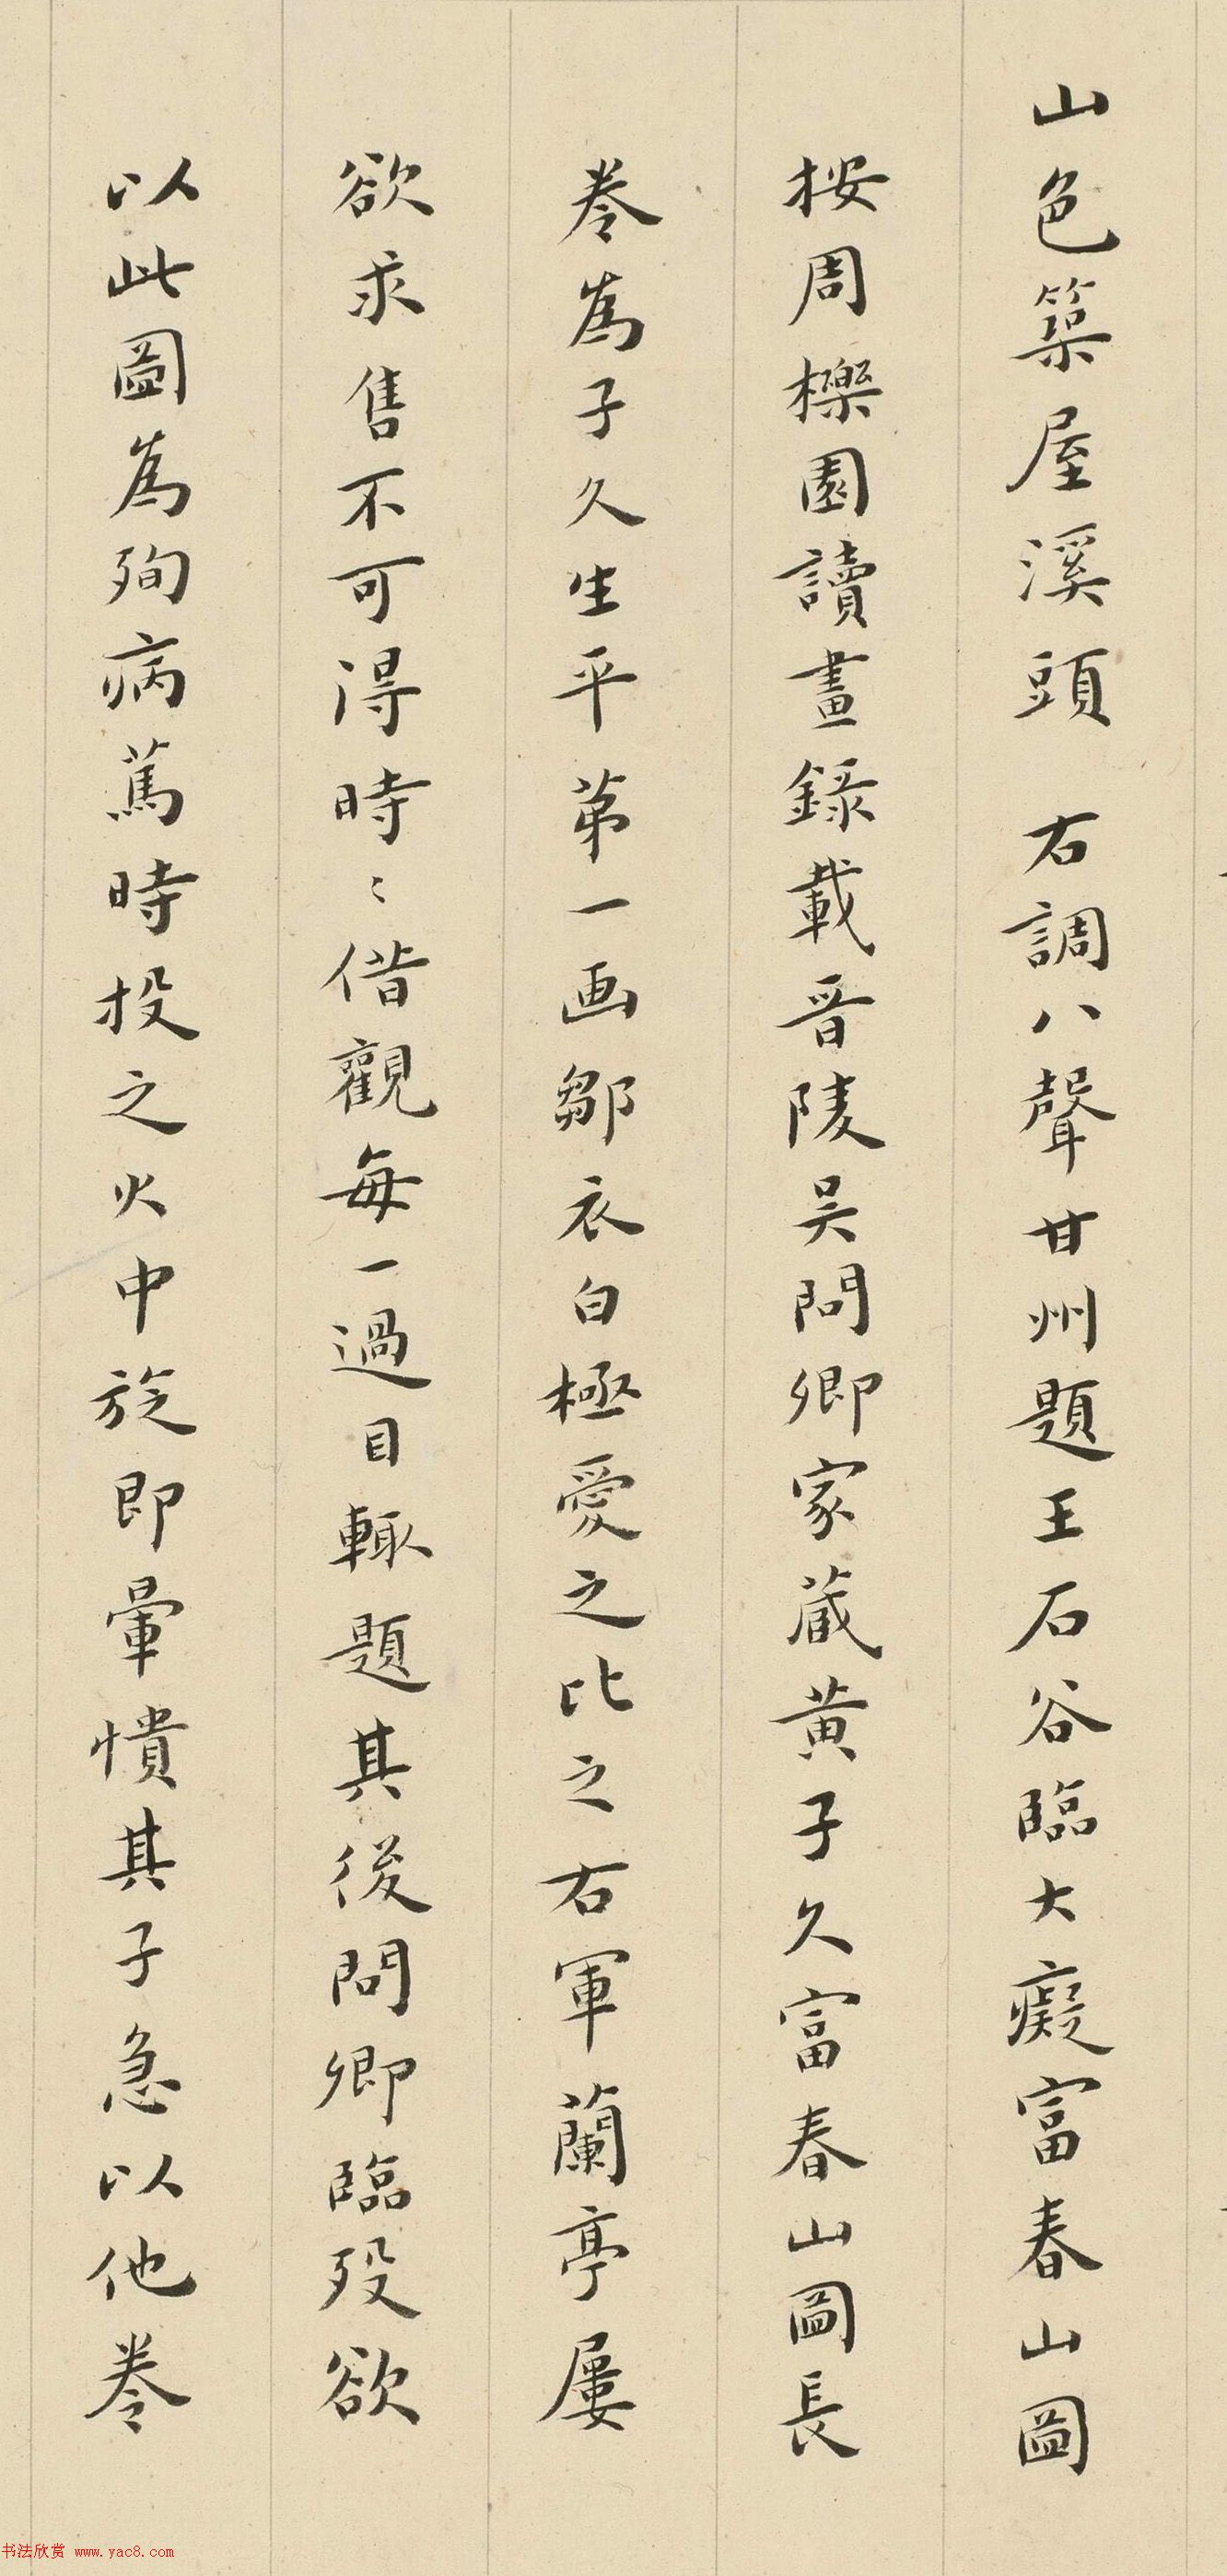 山色築屋溪頭 右調八聲甘州題王石谷臨大癡富春山圖
桉周櫟園讀畫錄載晋陵吴問卿家蔵黄子久富春山圖長
卷為子久生平苐一画鄒衣白極愛之比之右軍蘭亭屢
欲求售不可得時〻借觀每一過目輙題其後問卿臨歿欲
以此圖為殉病篤時投之火中旋即暈憒其子急以他卷
书法欣赏 www.yac8.com